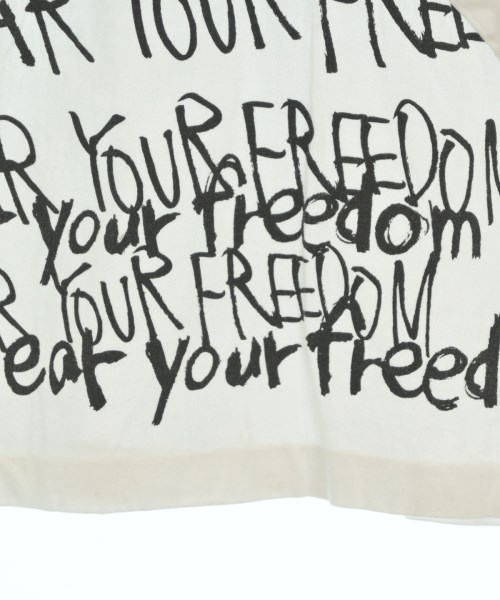 AR YOUR FREE
R YOUR FREEDOM
your freedom
R YOUR FREEDOM
ear your freed